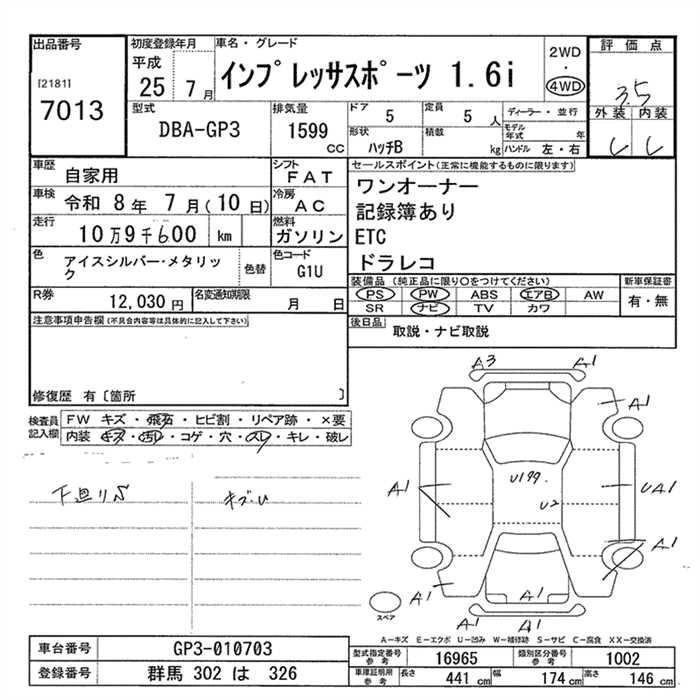 出品番号
[2181]
7013
初度登録年月
平成
25 7月
車名・グレード
インプレッサスポーツ 1.6i
2WD
・
4WD
評価点
3.5
外装 内装
型式
DBA-GP3
排気量
1599
CC
ドア
5
定員
5 人
ディーラー・並行
モデル年式 年
形状
ハッチB
積載
kg
ハンドル 左・右
車歴
自家用
シフト
FAT
車検
令和 8年 7月(10日)
冷房
AC
走行
10万9千600 km
燃料
ガソリン
色
アイスシルバー・メタリック
色替
色コード
G1U
R券
12,030円
名変通知期限
月 日
セールスポイント(正常に機能するものに限ります)
ワンオーナー
記録簿あり
ETC
ドラレコ
装備品 (純正品に限り〇をつけてください)
PS PW ABS エアB AW
SR ナビ TV カワ
新車保証書
有・無
後日品
取説・ナビ取説
注意事項申告欄(不具合内容等は具体的に記入して下さい)
修復歴 有〔箇所 〕
検査員記入欄
FW キズ・飛石・ヒビ割・リペア跡・×要
内装・キズ・汚レ・コゲ・穴・スレ・キレ・破レ
下廻りS
キズU
A3
A1
A1
A1
U199.
U2
UA1
A1
A1
A1
A1
スペア
A1
A-キズ E-エクボ U-凹み W-補修跡 S-サビ C-腐食 XX-交換済
車台番号
GP3-010703
登録番号
群馬 302 は 326
型式指定番号
参考
16965
類別区分番号
参考
1002
車庫証明用
参考
長さ
441 cm
幅
174 cm
高さ
146 cm